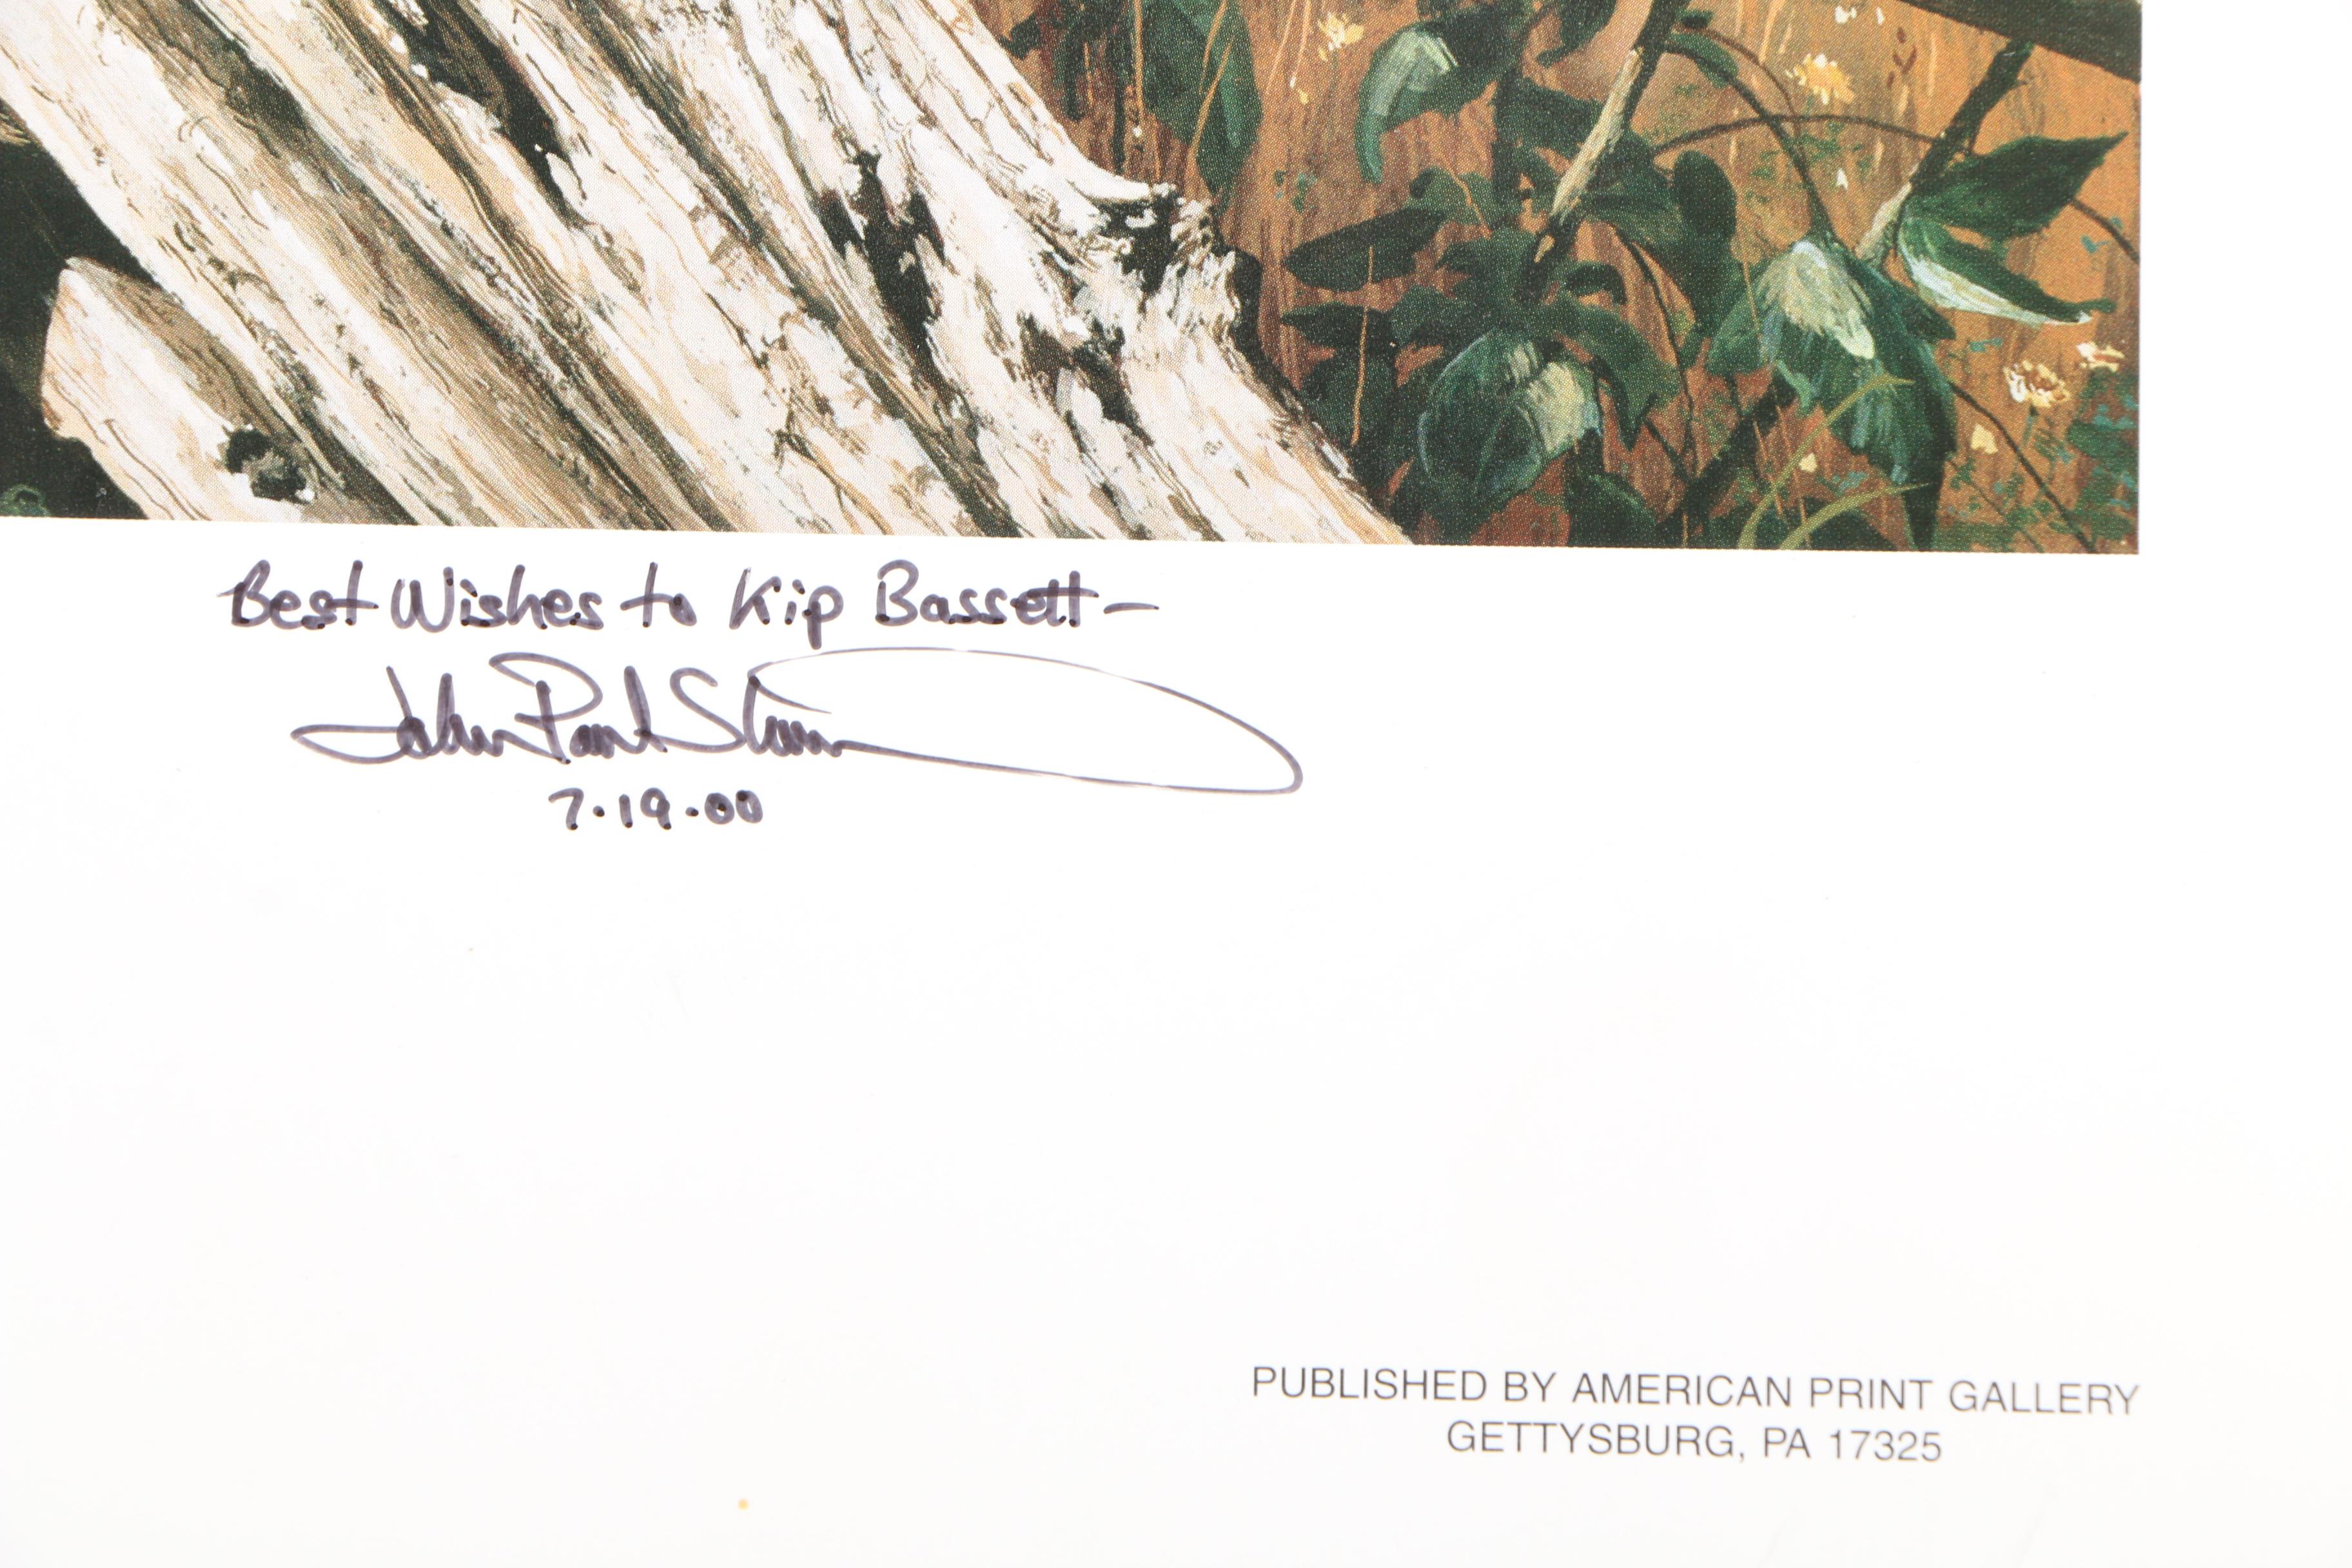 Best Wishes to Kip Bassett-
John Paul Strain
7.19.00
PUBLISHED BY AMERICAN PRINT GALLERY
GETTYSBURG, PA 17325